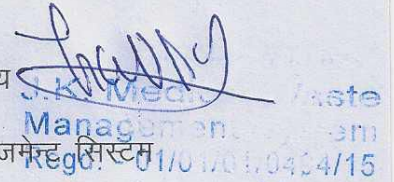 य
J.K. Medi Waste
Management System
जमेन्ट सिस्टम
Regd. - 01/01/01/0434/15